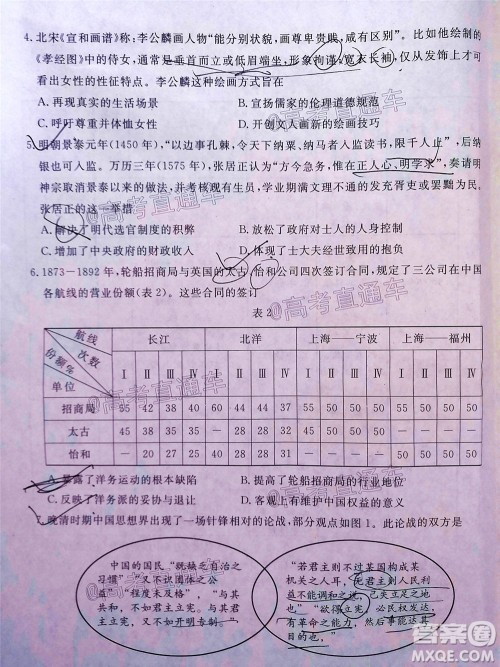 4.北宋《宣和画谱》称:李公麟画人物“能分别状貌,画尊卑贵贱,咸有区别”。比如他绘制的
《孝经图》中的侍女,通常是垂首而立或低眉端坐,形象拘谨,宽衣长袖,仅从发饰上才可
看出女性的性征特点。李公麟这种绘画方式旨在
A.再现真实的生活场景 B.宣扬儒家的伦理道德规范
C.呼吁尊重并体恤女性 D.开创文人画新的绘画技巧
5.明朝景泰元年(1450年),“以边事孔棘,令天下纳粟、纳马者入监读书,限千人止”,后纳
银也可入监。万历三年(1575年),张居正认为“方今急务,惟在正人心、明学求”,奏请明
神宗取消景泰以来的做法,并主张把学业严重不通的生员发充胥吏或罢黜为民。
张居正的这一举措
A.解决了明代选官制度的积弊 B.放松了政府对士人的人身控制
C.增加了中央政府的财政收入 D.体现了士大夫经世致用的抱负
6.1873-1892年,轮船招商局与英国的太古、怡和公司四次签订合同,规定了三公司在中国
各航线的营业份额(表2)。这些合同的签订
表2
航线 长江 北洋 上海——宁波 上海——福州
次数
份额% Ⅰ Ⅱ Ⅲ Ⅳ Ⅰ Ⅱ Ⅲ Ⅳ Ⅰ Ⅱ Ⅲ Ⅳ Ⅰ Ⅱ Ⅲ Ⅳ
单位
招商局 55 42 38 40 60 44 44 42 55 50 50 50 50 50 50
太古 45 38 35 35 28 28 31 45 50 50 50
怡和 20 27 25 40 28 28 27 50 50 50 50
A.暴露了洋务运动的根本缺陷 B.提高了轮船招商局的行业地位
C.反映了洋务派的妥协与退让 D.客观上有维护中国权益的意义
7.晚清时期中国思想界出现了一场针锋相对的论战,部分观点如图1。此论战的双方是
中国的国民,“既缺乏自治之
习惯”“又不识团体之公
益”“程度未及格”,“与其
共和,不如君主立宪;与其君主
立宪,又不如开明专制”。
“若君主则不过某国构成某
机关之人耳,况君主则人民利
益不能调和之迹,已失立足之地
也”“欲得立宪,必民权发达,
有革命之能力,然后乃能达其
目的也”。
@高考直通车
@高考直通车
@高考直通车
@高考直通车
答案圈
MXQE.COM